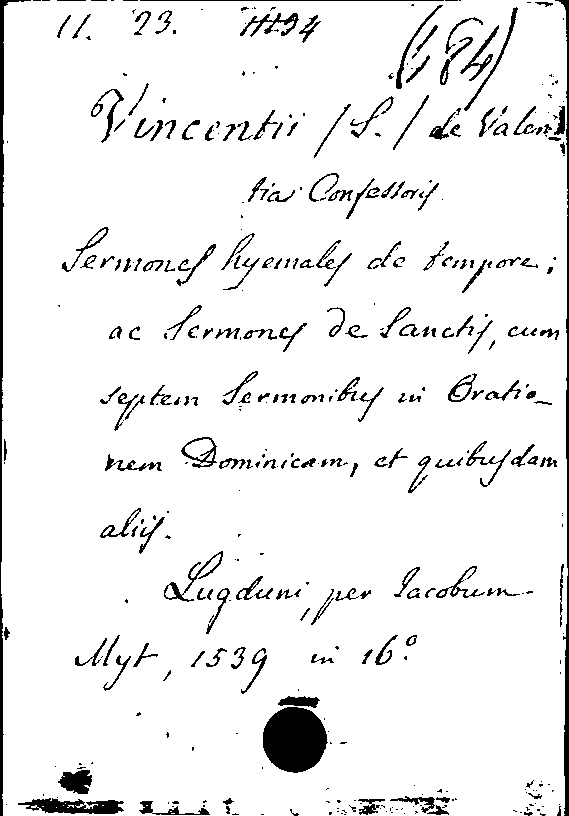 11. 23. 
(184)
Vincentii /S./ de Valen-
tia Confessoris
Sermones hyemales de tempore;
ac Sermones de Sanctis, cum
septem Sermonibus in Oratio-
nem Dominicam, et quibusdam
aliis.
Lugduni, per Iacobum
Myt, 1539 in 16º